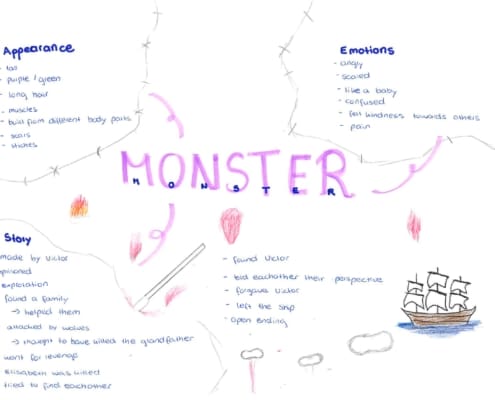 Appearance
- tall
- purple / green
- long hair
- muscles
- buid from different body parts
- scars
- stiches
Emotions
- angry
- scared
- like a baby
- confused
- felt kindness towards others
- pain
MONSTER
MONSTER
Story
made by Victor
exploration
found a family
→ helped them
attacked by wolves
→ thought to have killed the grandfather
went for revenge
Elisabeth was killed
tried to find eachother
- found Victor
- told eachother their perspective
- forgave Victor
- left the ship
- open ending